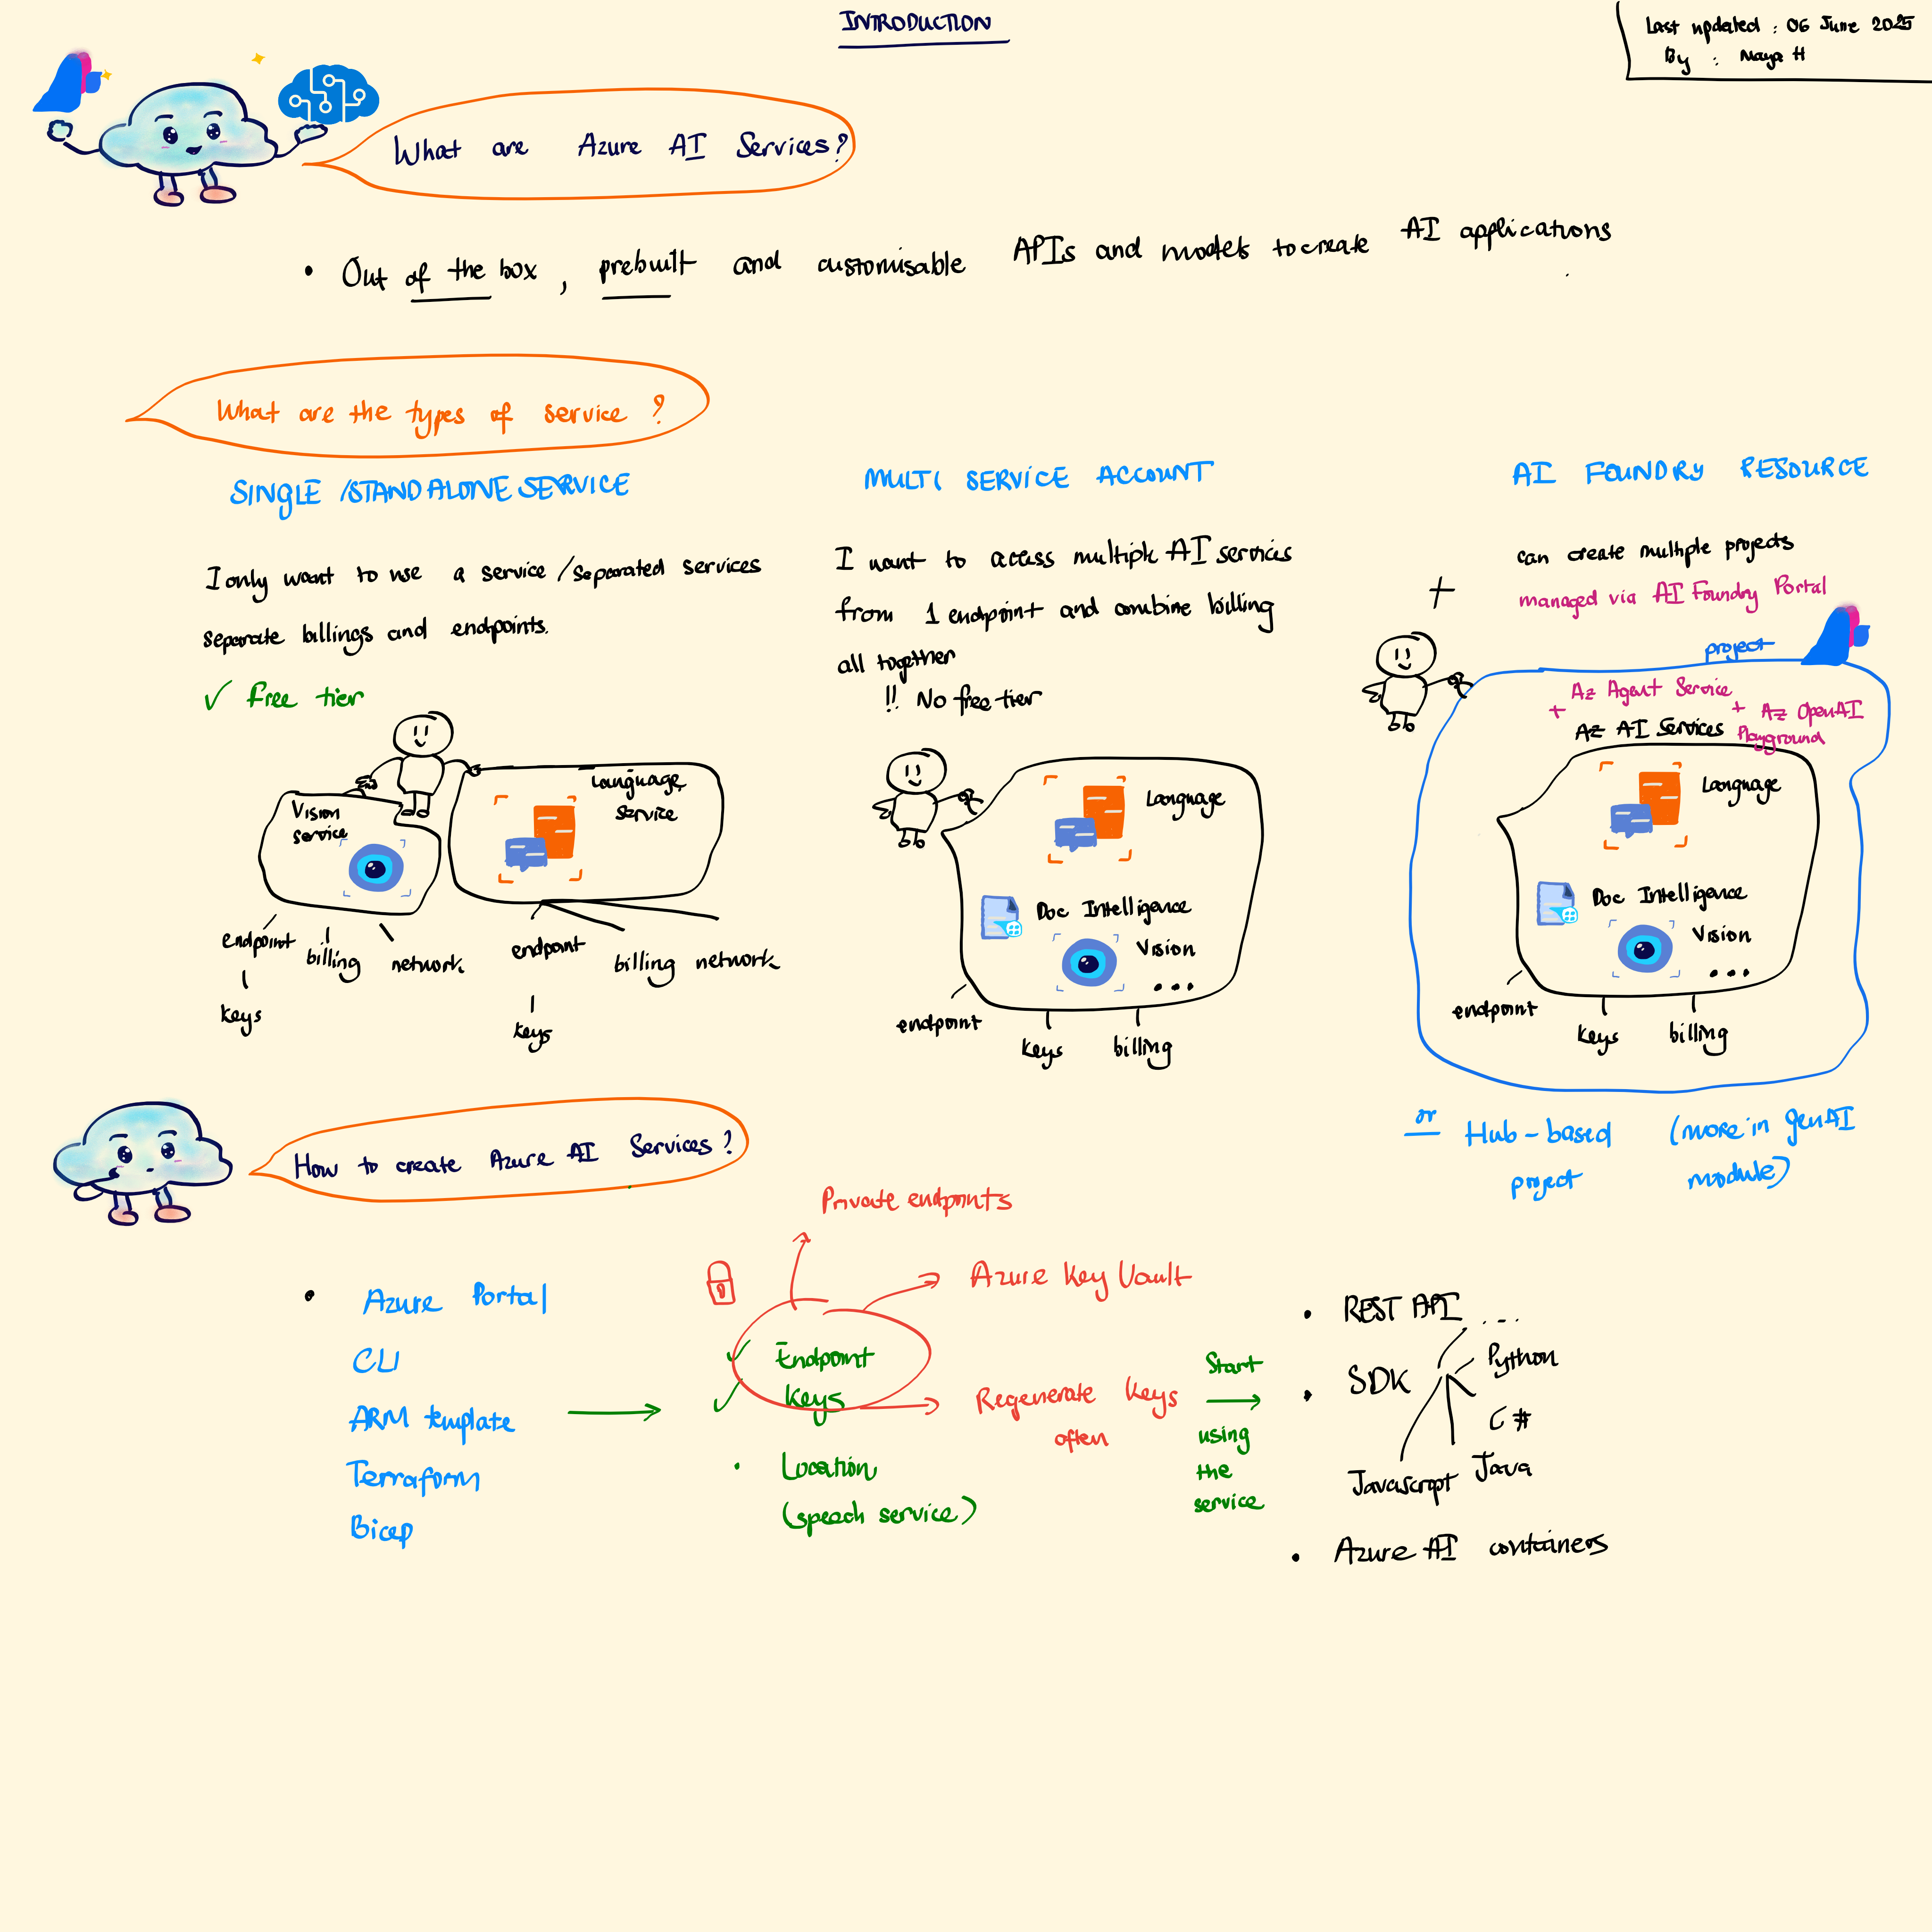 INTRODUCTION
Last updated : 06 June 2025
By : Maya H
What are Azure AI Services?
• Out of the box, prebuilt and customisable APIs and models to create AI applications
What are the types of service ?
SINGLE /STANDALONE SERVICE
I only want to use a service /separated services
separate billings and endpoints.
✓ Free tier
Vision
service
Language
service
endpoint
billing
network
keys
endpoint
billing
network
keys
MULTI SERVICE ACCOUNT
I want to access multiple AI services
from 1 endpoint and combine billing
all together
!! No free tier
Language
Doc Intelligence
Vision
...
endpoint
keys
billing
AI FOUNDRY RESOURCE
+
can create multiple projects
managed via AI Foundry Portal
project
+ Az Agent Service
Az AI Services
+ Az OpenAI
Playground
Language
Doc Intelligence
Vision
...
endpoint
keys
billing
or Hub-based
project
(more in genAI
module)
How to create Azure AI Services?
• Azure Portal
CLI
ARM template
Terraform
Bicep
Private endpoints
Azure Key Vault
✓ Endpoint
✓ keys
Regenerate keys
often
• Location
(speech service)
Start
using
the
service
• REST API
• SDK
....
Python
C#
Java
Javascript
• Azure AI containers